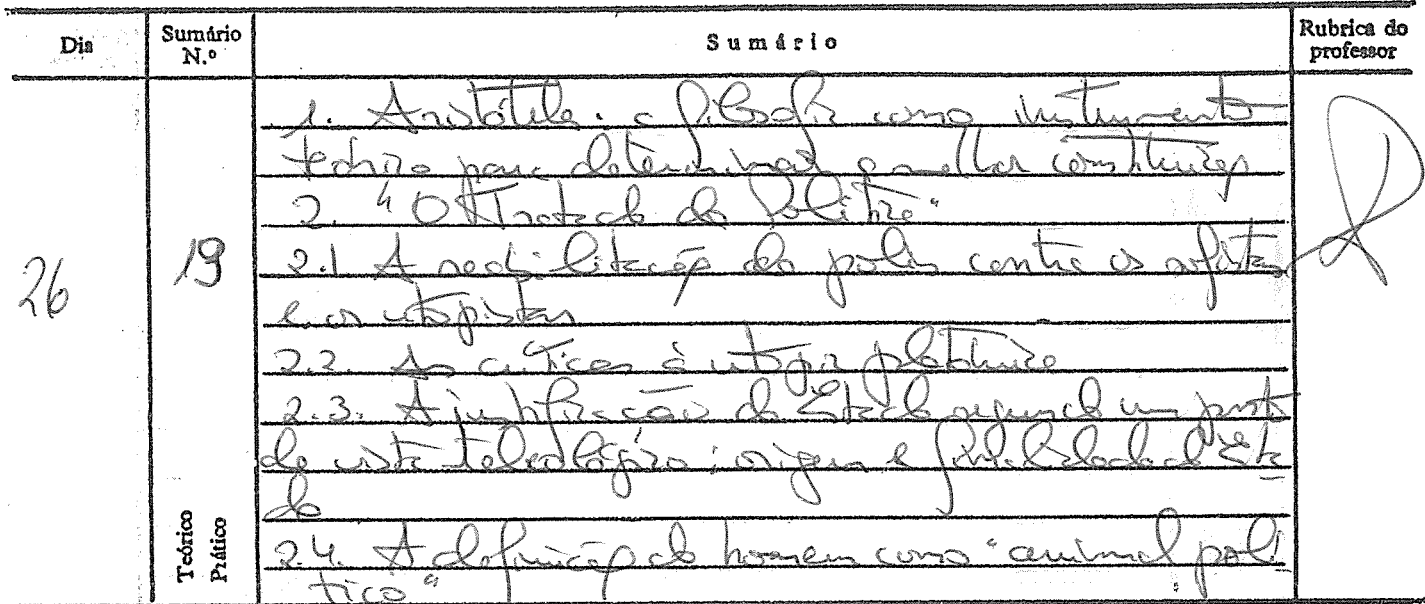 Dia Sumário N.º Sumário Rubrica do professor
1. Aristóteles. a filosofia como instrumento
teórico para determinar a melhor constituição
2. "O Tratado da Política"
2.1 A reabilitação da polis contra os sofistas
e os utopistas
2.2. As críticas à utopia platónica
2.3. A justificação do Estado segundo um ponto
de vista teleológico: origem e finalidade do Esta
do
2.4. A definição do homem como "animal polí
tico"
26 19
Teórico
Prático